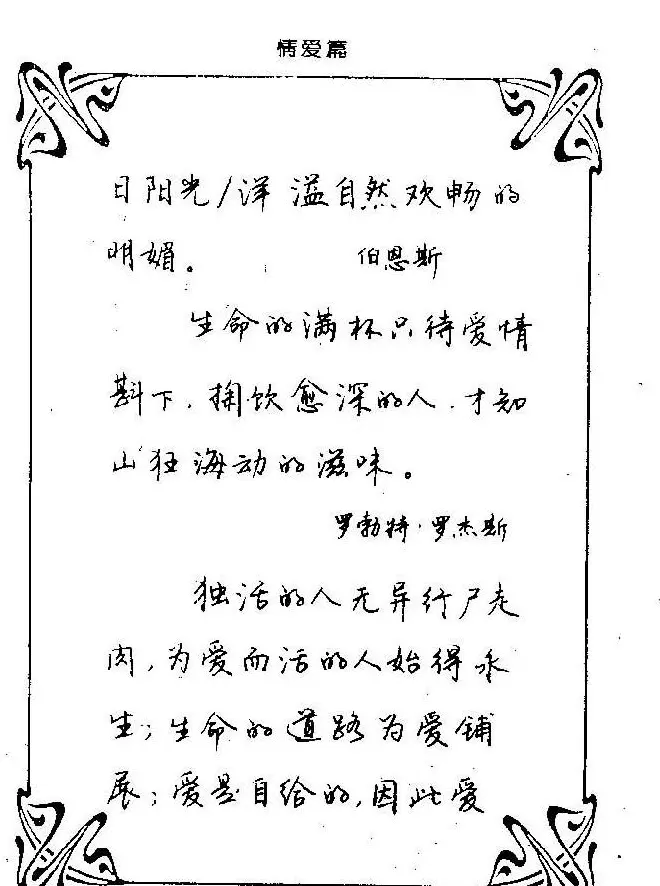 情爱篇
日阳光/洋溢自然欢畅的
明媚。 伯恩斯
生命的满杯只待爱情
斟下，掬饮愈深的人，才知
山狂海动的滋味。
罗勃特·罗杰斯
独活的人无异行尸走
肉，为爱而活的人始得永
生；生命的道路为爱铺
展；爱是自给的，因此爱